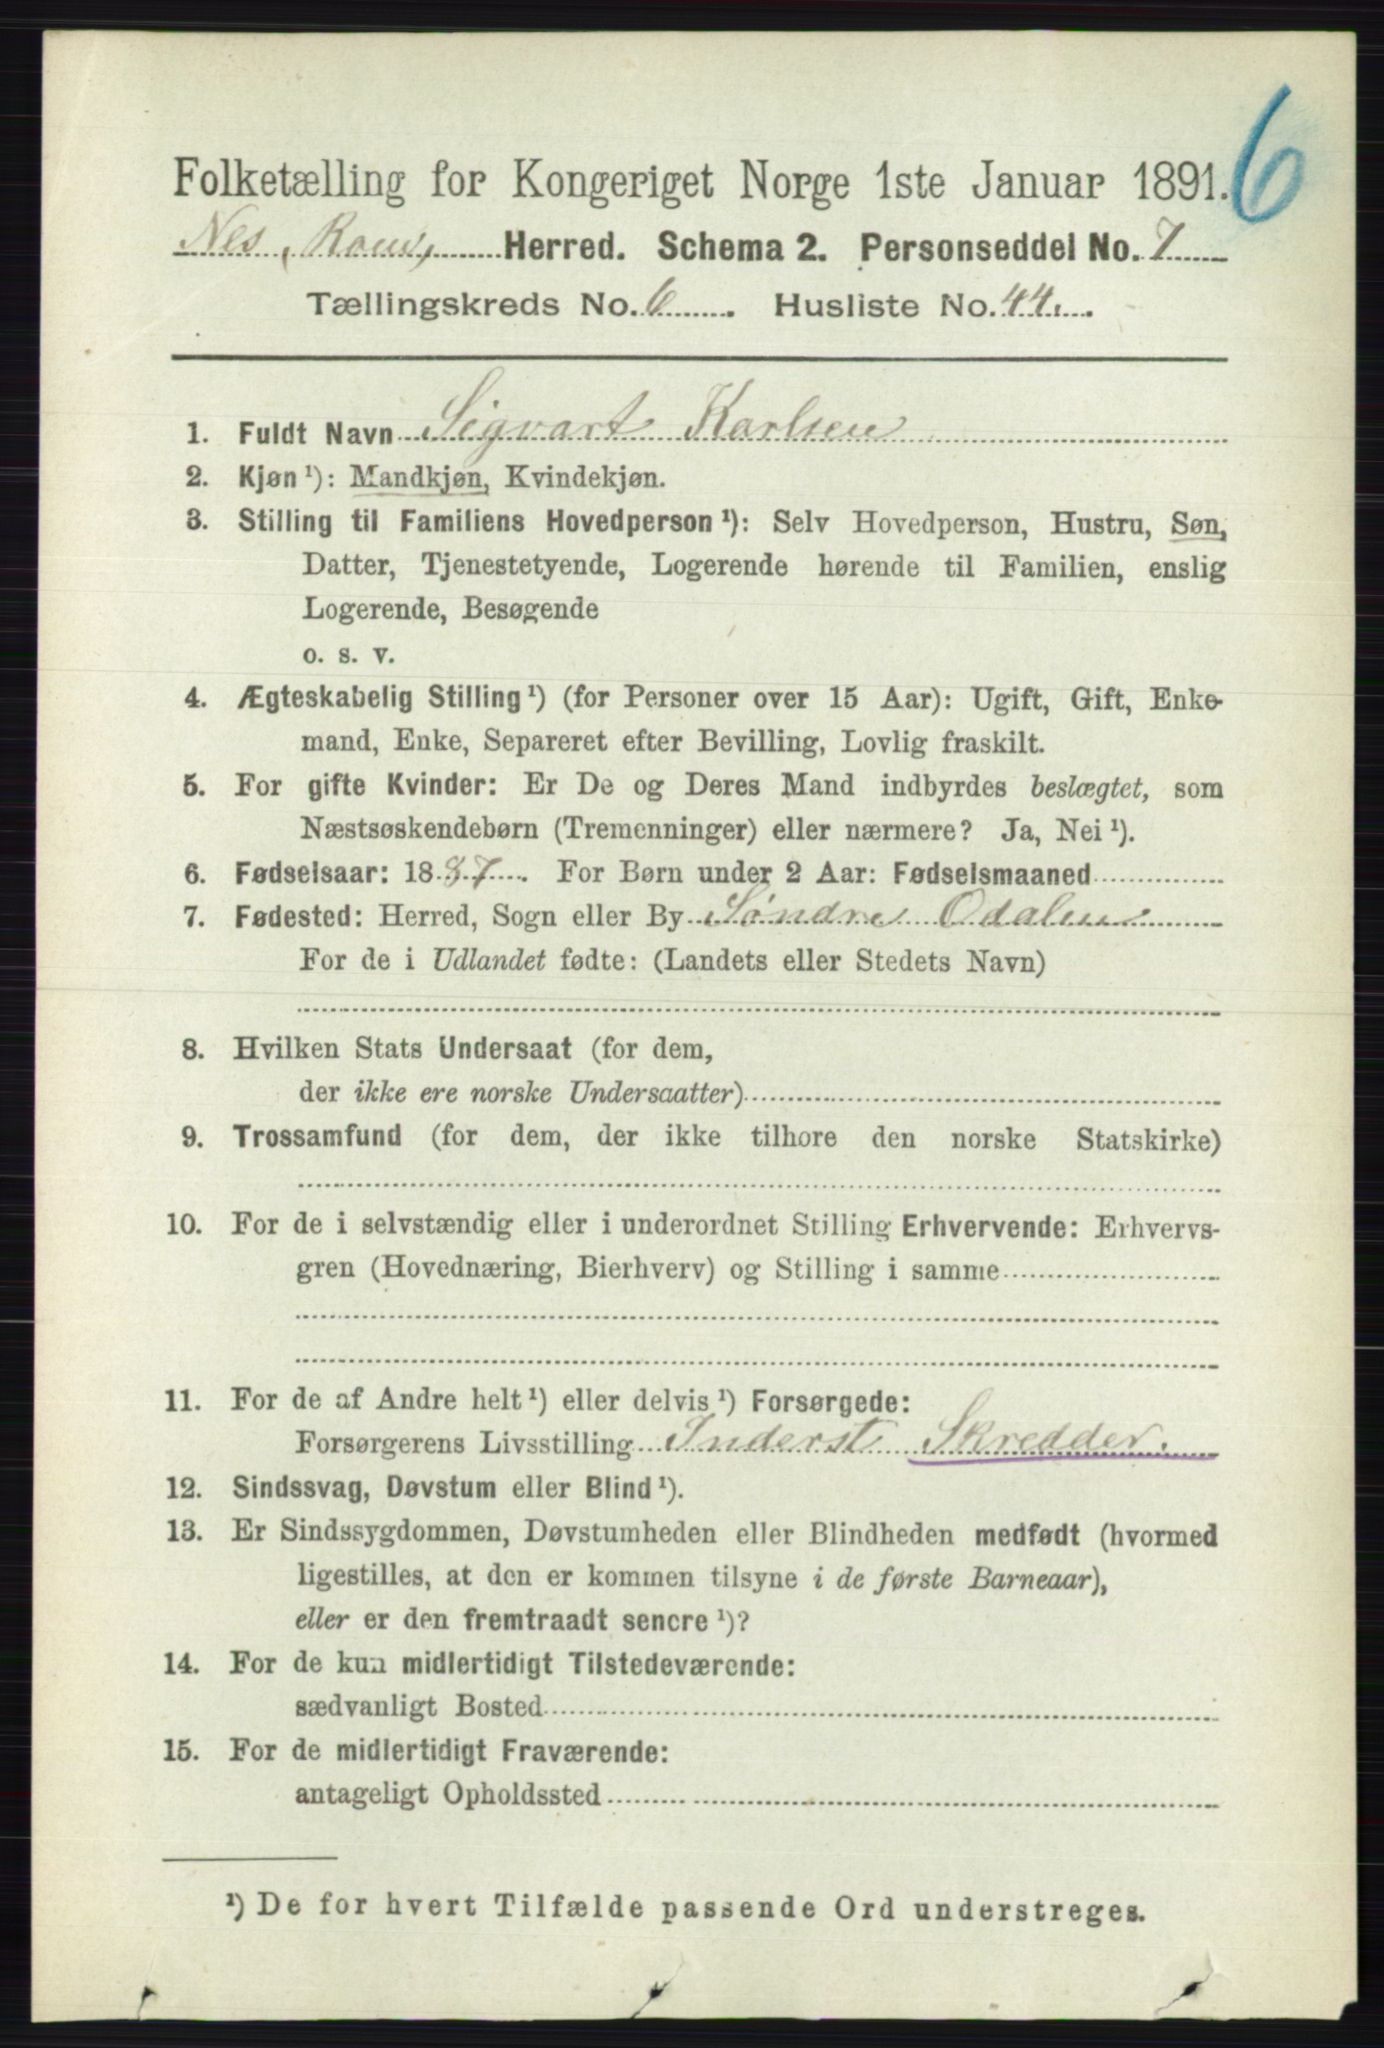 6
Folketælling for Kongeriget Norge 1ste Januar 1891.
Nes, Rom, Herred. Schema 2. Personseddel No. 7
Tællingskreds No. 6. Husliste No. 44.
1. Fuldt Navn Sigvart Karlsen
2. Kjøn ¹): Mandkjøn, Kvindekjøn.
3. Stilling til Familiens Hovedperson ¹): Selv Hovedperson, Hustru, Søn,
Datter, Tjenestetyende, Logerende hørende til Familien, enslig
Logerende, Besøgende
o. s. v.
4. Ægteskabelig Stilling ¹) (for Personer over 15 Aar): Ugift, Gift, Enke-
mand, Enke, Separeret efter Bevilling, Lovlig fraskilt.
5. For gifte Kvinder: Er De og Deres Mand indbyrdes beslægtet, som
Næstsøskendebørn (Tremenninger) eller nærmere? Ja, Nei ¹).
6. Fødselsaar: 1887. For Børn under 2 Aar: Fødselsmaaned
7. Fødested: Herred, Sogn eller By Søndre Odalen
For de i Udlandet fødte: (Landets eller Stedets Navn)
8. Hvilken Stats Undersaat (for dem,
der ikke ere norske Undersaatter)
9. Trossamfund (for dem, der ikke tilhøre den norske Statskirke)
10. For de i selvstændig eller i underordnet Stilling Erhvervende: Erhvervs-
gren (Hovednæring, Bierhverv) og Stilling i samme
11. For de af Andre helt ¹) eller delvis ¹) Forsørgede:
Forsørgerens Livsstilling Inderst Skredder.
12. Sindssvag, Døvstum eller Blind ¹).
13. Er Sindssygdommen, Døvstumheden eller Blindheden medfødt (hvormed
ligestilles, at den er kommen tilsyne i de første Barneaar),
eller er den fremtraadt senere ¹)?
14. For de kun midlertidigt Tilstedeværende:
sædvanligt Bosted
15. For de midlertidigt Fraværende:
antageligt Opholdssted
¹) De for hvert Tilfælde passende Ord understreges.